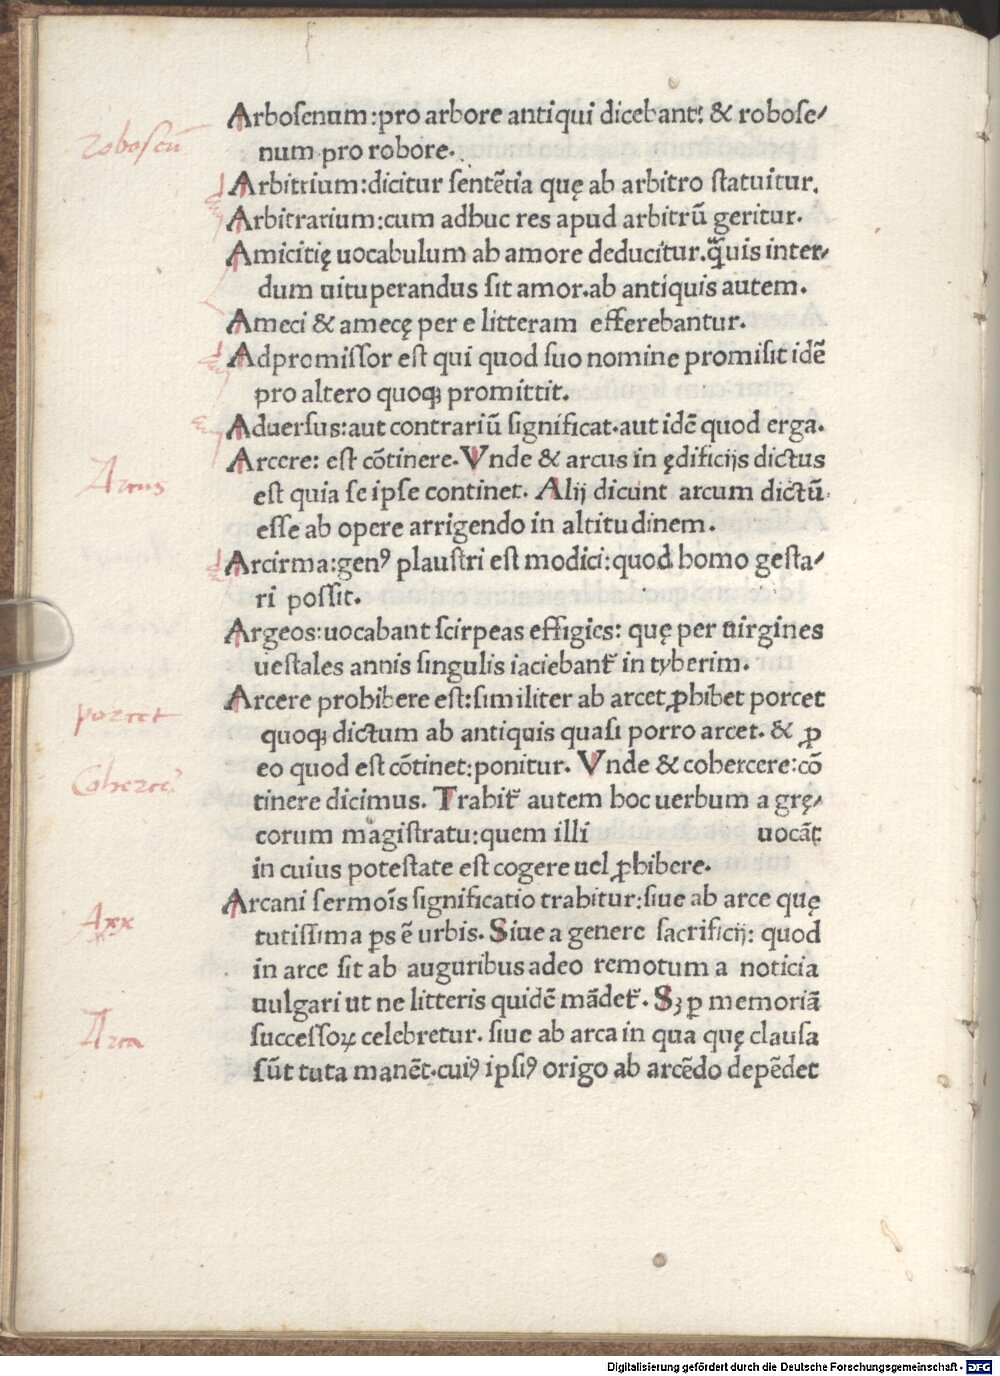 Arbosenum:pro arbore antiqui dicebant: & robose/
num pro robore.
robosenū
Arbitrium:dicitur sentētia quę ab arbitro statuitur.
Arbitrarium:cum adhuc res apud arbitrū geritur.
Amicitię uocabulum ab amore deducitur.q̄uis inter/
dum uituperandus sit amor.ab antiquis autem.
Ameci & amecę per e litteram efferebantur.
Adpromissor est qui quod suo nomine promisit idē
pro altero quoqꝫ promittit.
Aduersus:aut contrariū significat.aut idē quod erga.
Arcere: est cōtinere. Vnde & arcus in ędificijs dictus
Arcus
est quia se ipse continet. Alij dicunt arcum dictū
esse ab opere arrigendo in altitudinem.
Arcirma:genꝰ plaustri est modici:quod homo gesta/
ri possit.
Argeos:uocabant scirpeas effigies: quę per uirgines
uestales annis singulis iaciebant᷑ in tyberim.
Arcere prohibere est:similiter ab arcet ꝓhibet porcet
porcet
quoqꝫ dictum ab antiquis quasi porro arcet. & ꝓ
eo quod est cōtinet:ponitur. Vnde & cohercere:cō
Cohercē
tinere dicimus. Trahit᷑ autem hoc uerbum a grę/
corum magistratu:quem illi uocāt
in cuius potestate est cogere uel ꝓhibere.
Arcani sermōis significatio trahitur:siue ab arce quę
Arx
tutissima ꝑs ē urbis. Siue a genere sacrificij: quod
in arce sit ab auguribus adeo remotum a noticia
uulgari ut ne litteris quidē mādet᷑. Sꝫ ꝑ memoriā
successoꝝ celebretur. siue ab arca in qua quę clausa
Arca
sūt tuta manēt.cuiꝰ ipsiꝰ origo ab arcēdo depēdet
Digitalisierung gefördert durch die Deutsche Forschungsgemeinschaft - DFG